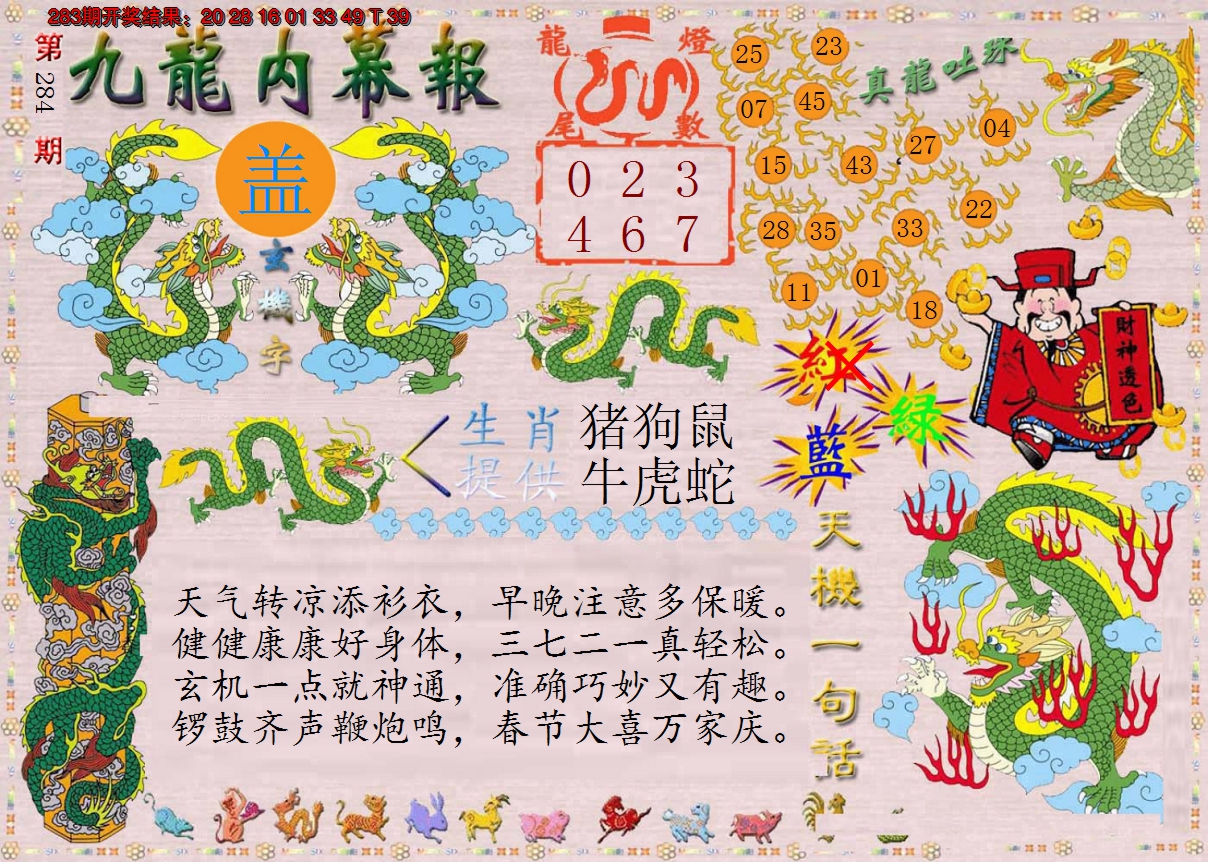 283期开奖结果：20 28 16 01 33 49 T 39
第 284 期
九龍内幕報
盖
玄機字
龍燈
尾數
0 2 3
4 6 7
真龍吐珠
25 23
07 45
27 04
15 43
22
28 35 33
11 01
18
紅
綠
藍
財神透色
生肖 猪狗鼠
提供 牛虎蛇
天機一句话
天气转凉添衫衣，早晚注意多保暖。
健健康康好身体，三七二一真轻松。
玄机一点就神通，准确巧妙又有趣。
锣鼓齐声鞭炮鸣，春节大喜万家庆。